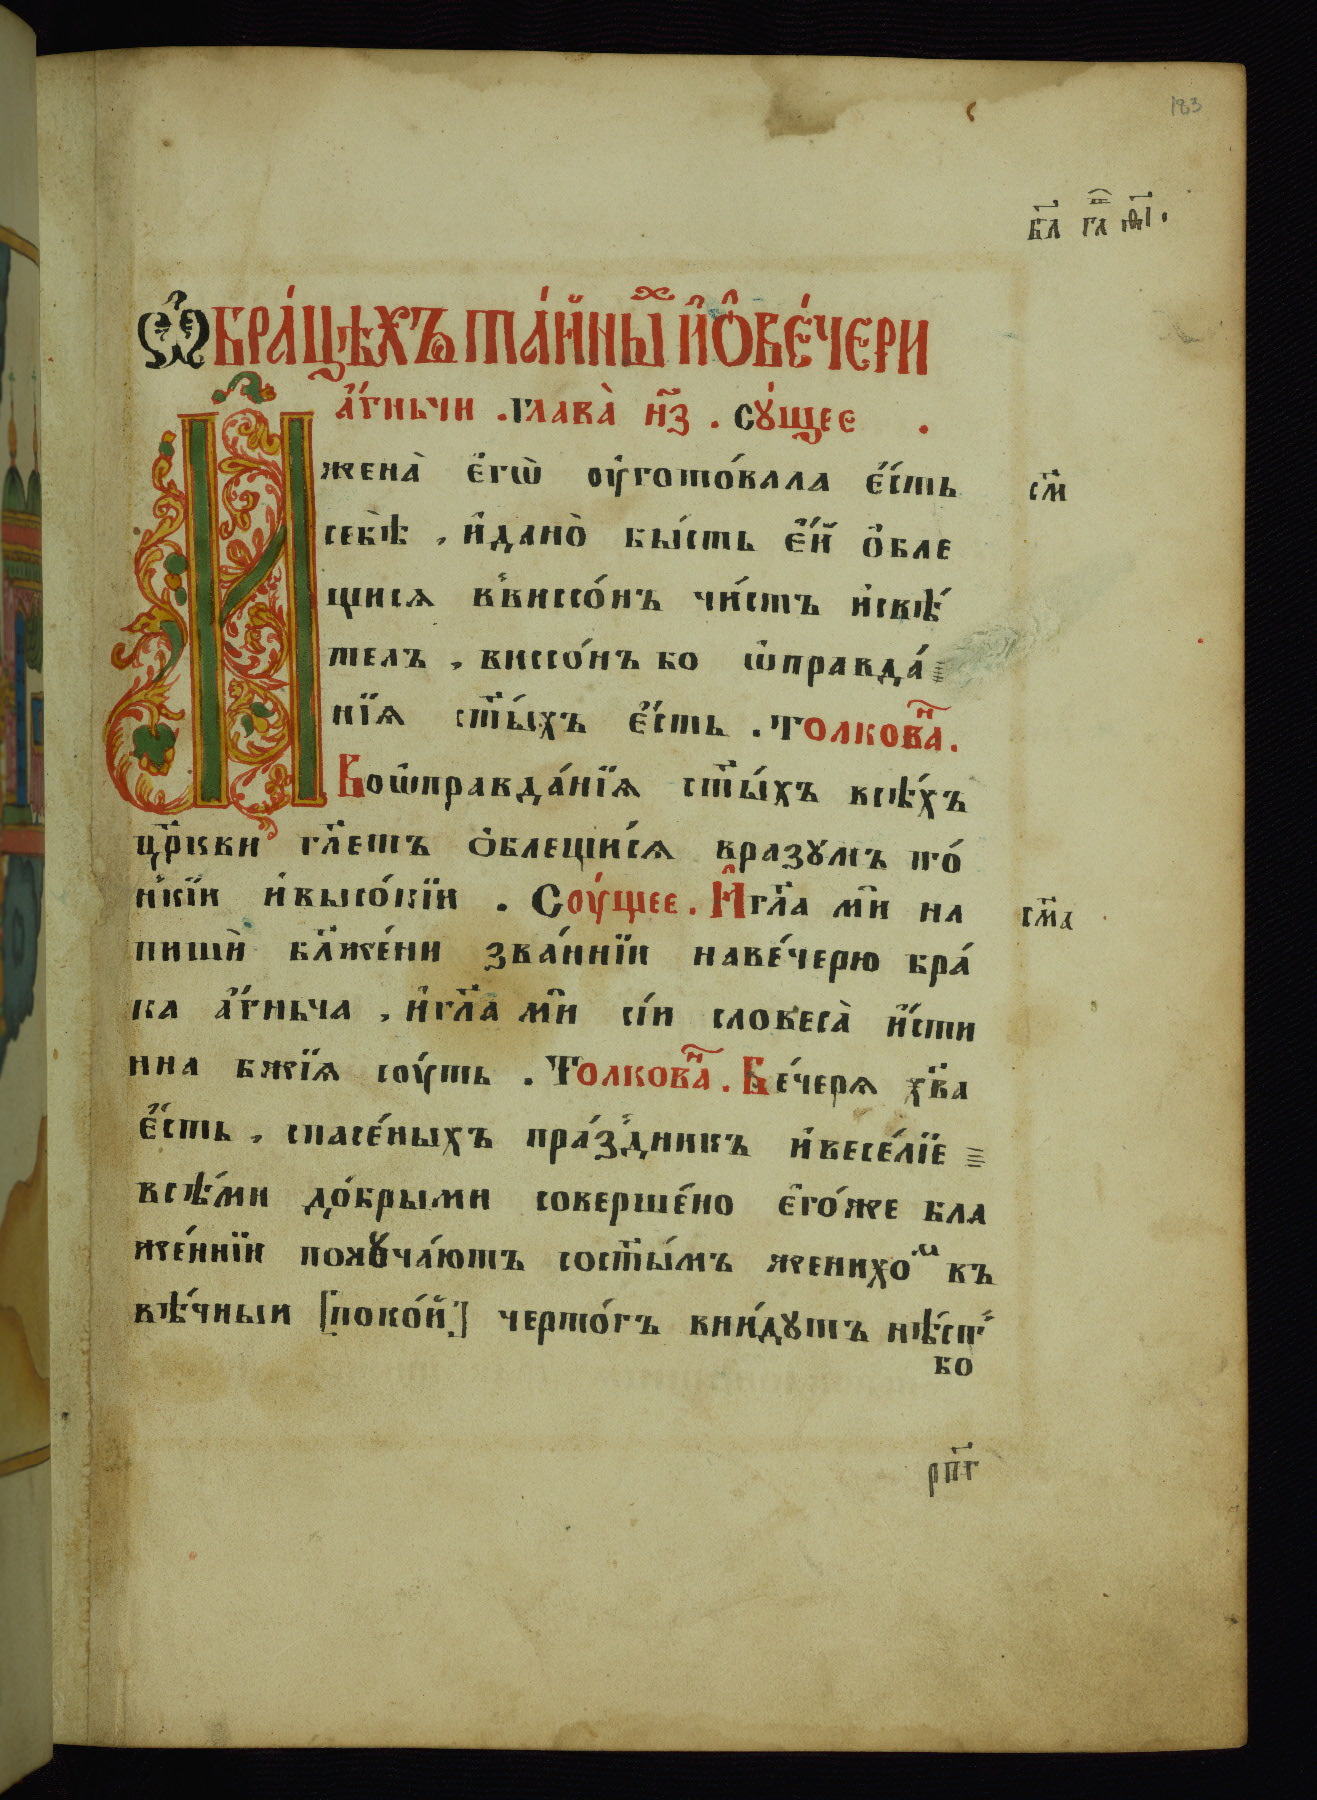 183
Ѡ҆ БРА́ЦѢХЪ ТА́ЙНЫХ И҆ Ѽ ВЕ́ЧЕРИ
А҆́ГНЬЧИ . ГЛАВА̀ Н҃З . СꙊ́ЩЕЕ .
жена̀ є҆гѡ̀ оу҆гото́вала є҆́сть
с҃м
себѣ̀ , и҆дано̀ бы́сть є҆́й ѻ҆бле
щися в̾виссо́нъ чи́стъ и҆свѣ́
телъ , виссо́нъ бо ѡ҆правда́
нїѧ ст҃ы́хъ є҆́сть . Толкова́н .
Воѡ҆правда́нїѧ ст҃ы́хъ всѣ́хъ
цр҃кви гл҃етъ ѻ҆блещи́сѧ вразумъ то́
нкїи и҆высо́кїи . Соу́щее . И҆гл҃а мѝ на
с҃ма
пишѝ бл҃же́ни зва́ннїи наве́черю бра́
ка а҆́гньча , и҆гл҃а мѝ сі́и словеса̀ и҆́сти
нна бж҃їѧ соу́ть . Толкова́н . Ве́черѧ хв҃а
є҆́сть , спасе́ныхъ пра́здникъ и҆весе́лїе
всѣ́ми до́брыми соверше́но є҆го́же бла
же́ннїи полꙋча́ютъ сост҃ы́мъ женихо́м въ
вѣ́чныи [поко́й] черто́гъ вни́дутъ нѣ́ст̾
бо
рп҃г